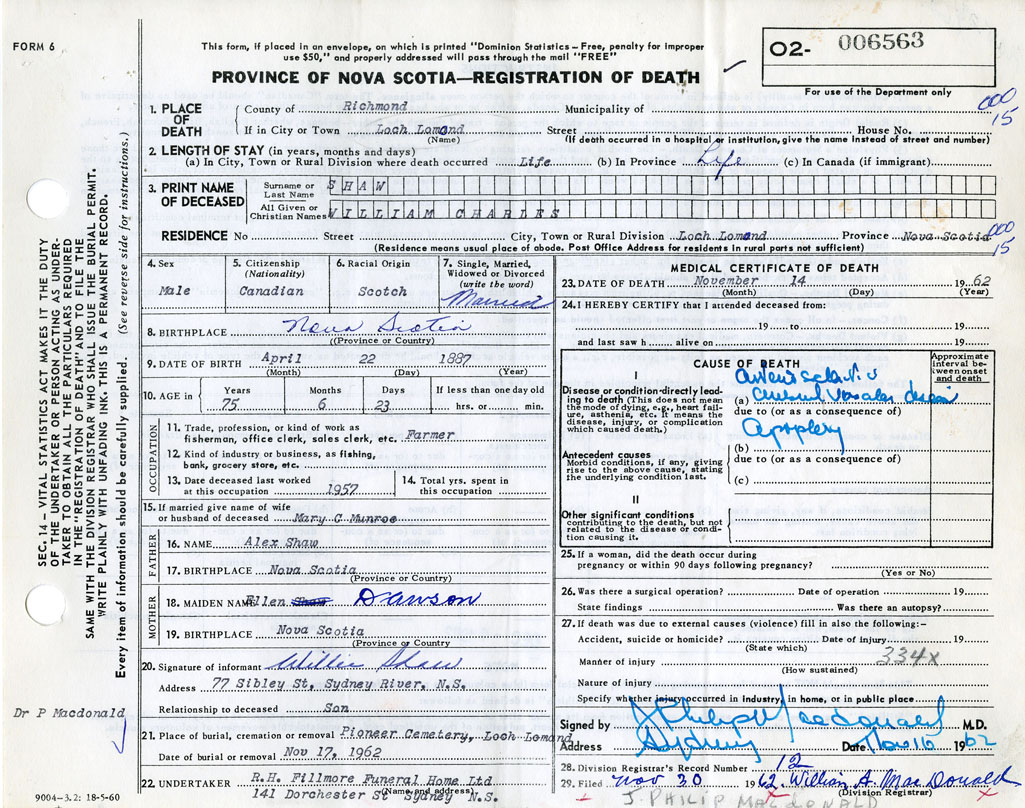 FORM 6
This form, if placed in an envelope, on which is printed "Dominion Statistics – Free, penalty for improper
use $50," and properly addressed will pass through the mail "FREE"
PROVINCE OF NOVA SCOTIA—REGISTRATION OF DEATH
O2- 006563
For use of the Department only
000
15
1. PLACE OF DEATH
County of Richmond Municipality of
If in City or Town Loch Lomond Street House No.
(Name) (If death occurred in a hospital or institution, give the name instead of street and number)
2. LENGTH OF STAY (in years, months and days)
(a) In City, Town or Rural Division where death occurred Life (b) In Province Life (c) In Canada (if immigrant)
3. PRINT NAME OF DECEASED
Surname or Last Name SHAW
All Given or Christian Names WILLIAM CHARLES
RESIDENCE No Street City, Town or Rural Division Loch Lomond Province Nova Scotia
(Residence means usual place of abode. Post Office Address for residents in rural parts not sufficient)
000
15
4. Sex
Male
5. Citizenship
(Nationality)
Canadian
6. Racial Origin
Scotch
7. Single, Married,
Widowed or Divorced
(write the word)
Married
8. BIRTHPLACE Nova Scotia
((Province or Country)
9. DATE OF BIRTH April 22 1887
(Month) (Day) (Year)
10. AGE in
Years Months Days If less than one day old
75 6 23 hrs. or min.
OCCUPATION
11. Trade, profession, or kind of work as
fisherman, office clerk, sales clerk, etc. Farmer
12. Kind of industry or business, as fishing,
bank, grocery store, etc.
13. Date deceased last worked
at this occupation 1957
14. Total yrs. spent in
this occupation
15. If married give name of wife
or husband of deceased Mary C Munroe
FATHER
16. NAME Alex Shaw
17. BIRTHPLACE Nova Scotia
(Province or Country)
MOTHER
18. MAIDEN NAME Ellen Shaw Dawson
19. BIRTHPLACE Nova Scotia
(Province or Country
20. Signature of informant Willie Shaw
Address 77 Sibley St, Sydney River, N.S.
Relationship to deceased Son
21. Place of burial, cremation or removal Pioneer Cemetery, Loch Lomand
Date of burial or removal Nov 17, 1962
22. UNDERTAKER R.H. Fillmore Funeral Home Ltd
(Name and address)
141 Dorchester St Sydney N.S.
MEDICAL CERTIFICATE OF DEATH
23. DATE OF DEATH November 14 1962
(Month) (Day) (Year)
24. I HEREBY CERTIFY that I attended deceased from:
19 to 19
and last saw h alive on 19
CAUSE OF DEATH
Approximate
interval be-
tween onset
and death
I
Disease or condition-directly lead-
ing to death (This does not mean
the mode of dying, e.g., heart fail-
ure, asthenia, etc. It means the
disease, injury, or complication
which caused death.)
(a) cerebral vascular disease
due to (or as a consequence of)
Apoplexy
Antecedent causes
Morbid conditions, if any, giving
rise to the above cause, stating
the underlying condition last.
(b)
due to (or as a consequence of)
(c)
II
Other significant conditions
contributing to the death, but not
related to the disease or condi-
tion causing it.
25. If a woman, did the death occur during
pregnancy or within 90 days following pregnancy?
(Yes or No)
26. Was there a surgical operation? Date of operation 19
State findings Was there an autopsy?
27. If death was due to external causes (violence) fill in also the following:–
Accident, suicide or homicide? Date of injury 19
(State which)
Manner of injury 334x
(How sustained)
Nature of injury
Specify whether injury occurred in industry, in home, or in public place
Signed by J Philip Macdonald M.D.
Address Sydney Date Nov 16 1962
28. Division Registrar's Record Number 12
29. Filed Nov 30 1962 William A. MacDonald
(Division Registrar)
J. PHILIP MACDONALD
SEC. 14 – VITAL STATISTICS ACT MAKES IT THE DUTY
OF THE UNDERTAKER OR PERSON ACTING AS UNDER-
TAKER TO OBTAIN ALL THE PARTICULARS REQUIRED
IN THE "REGISTRATION OF DEATH" AND TO FILE THE
SAME WITH THE DIVISION REGISTRAR WHO SHALL ISSUE THE BURIAL PERMIT.
WRITE PLAINLY WITH UNFADING INK. THIS IS A PERMANENT RECORD.
Every item of information should be carefully supplied. (See reverse side for instructions.)
Dr P Macdonald
9004–3.2: 18-5-60